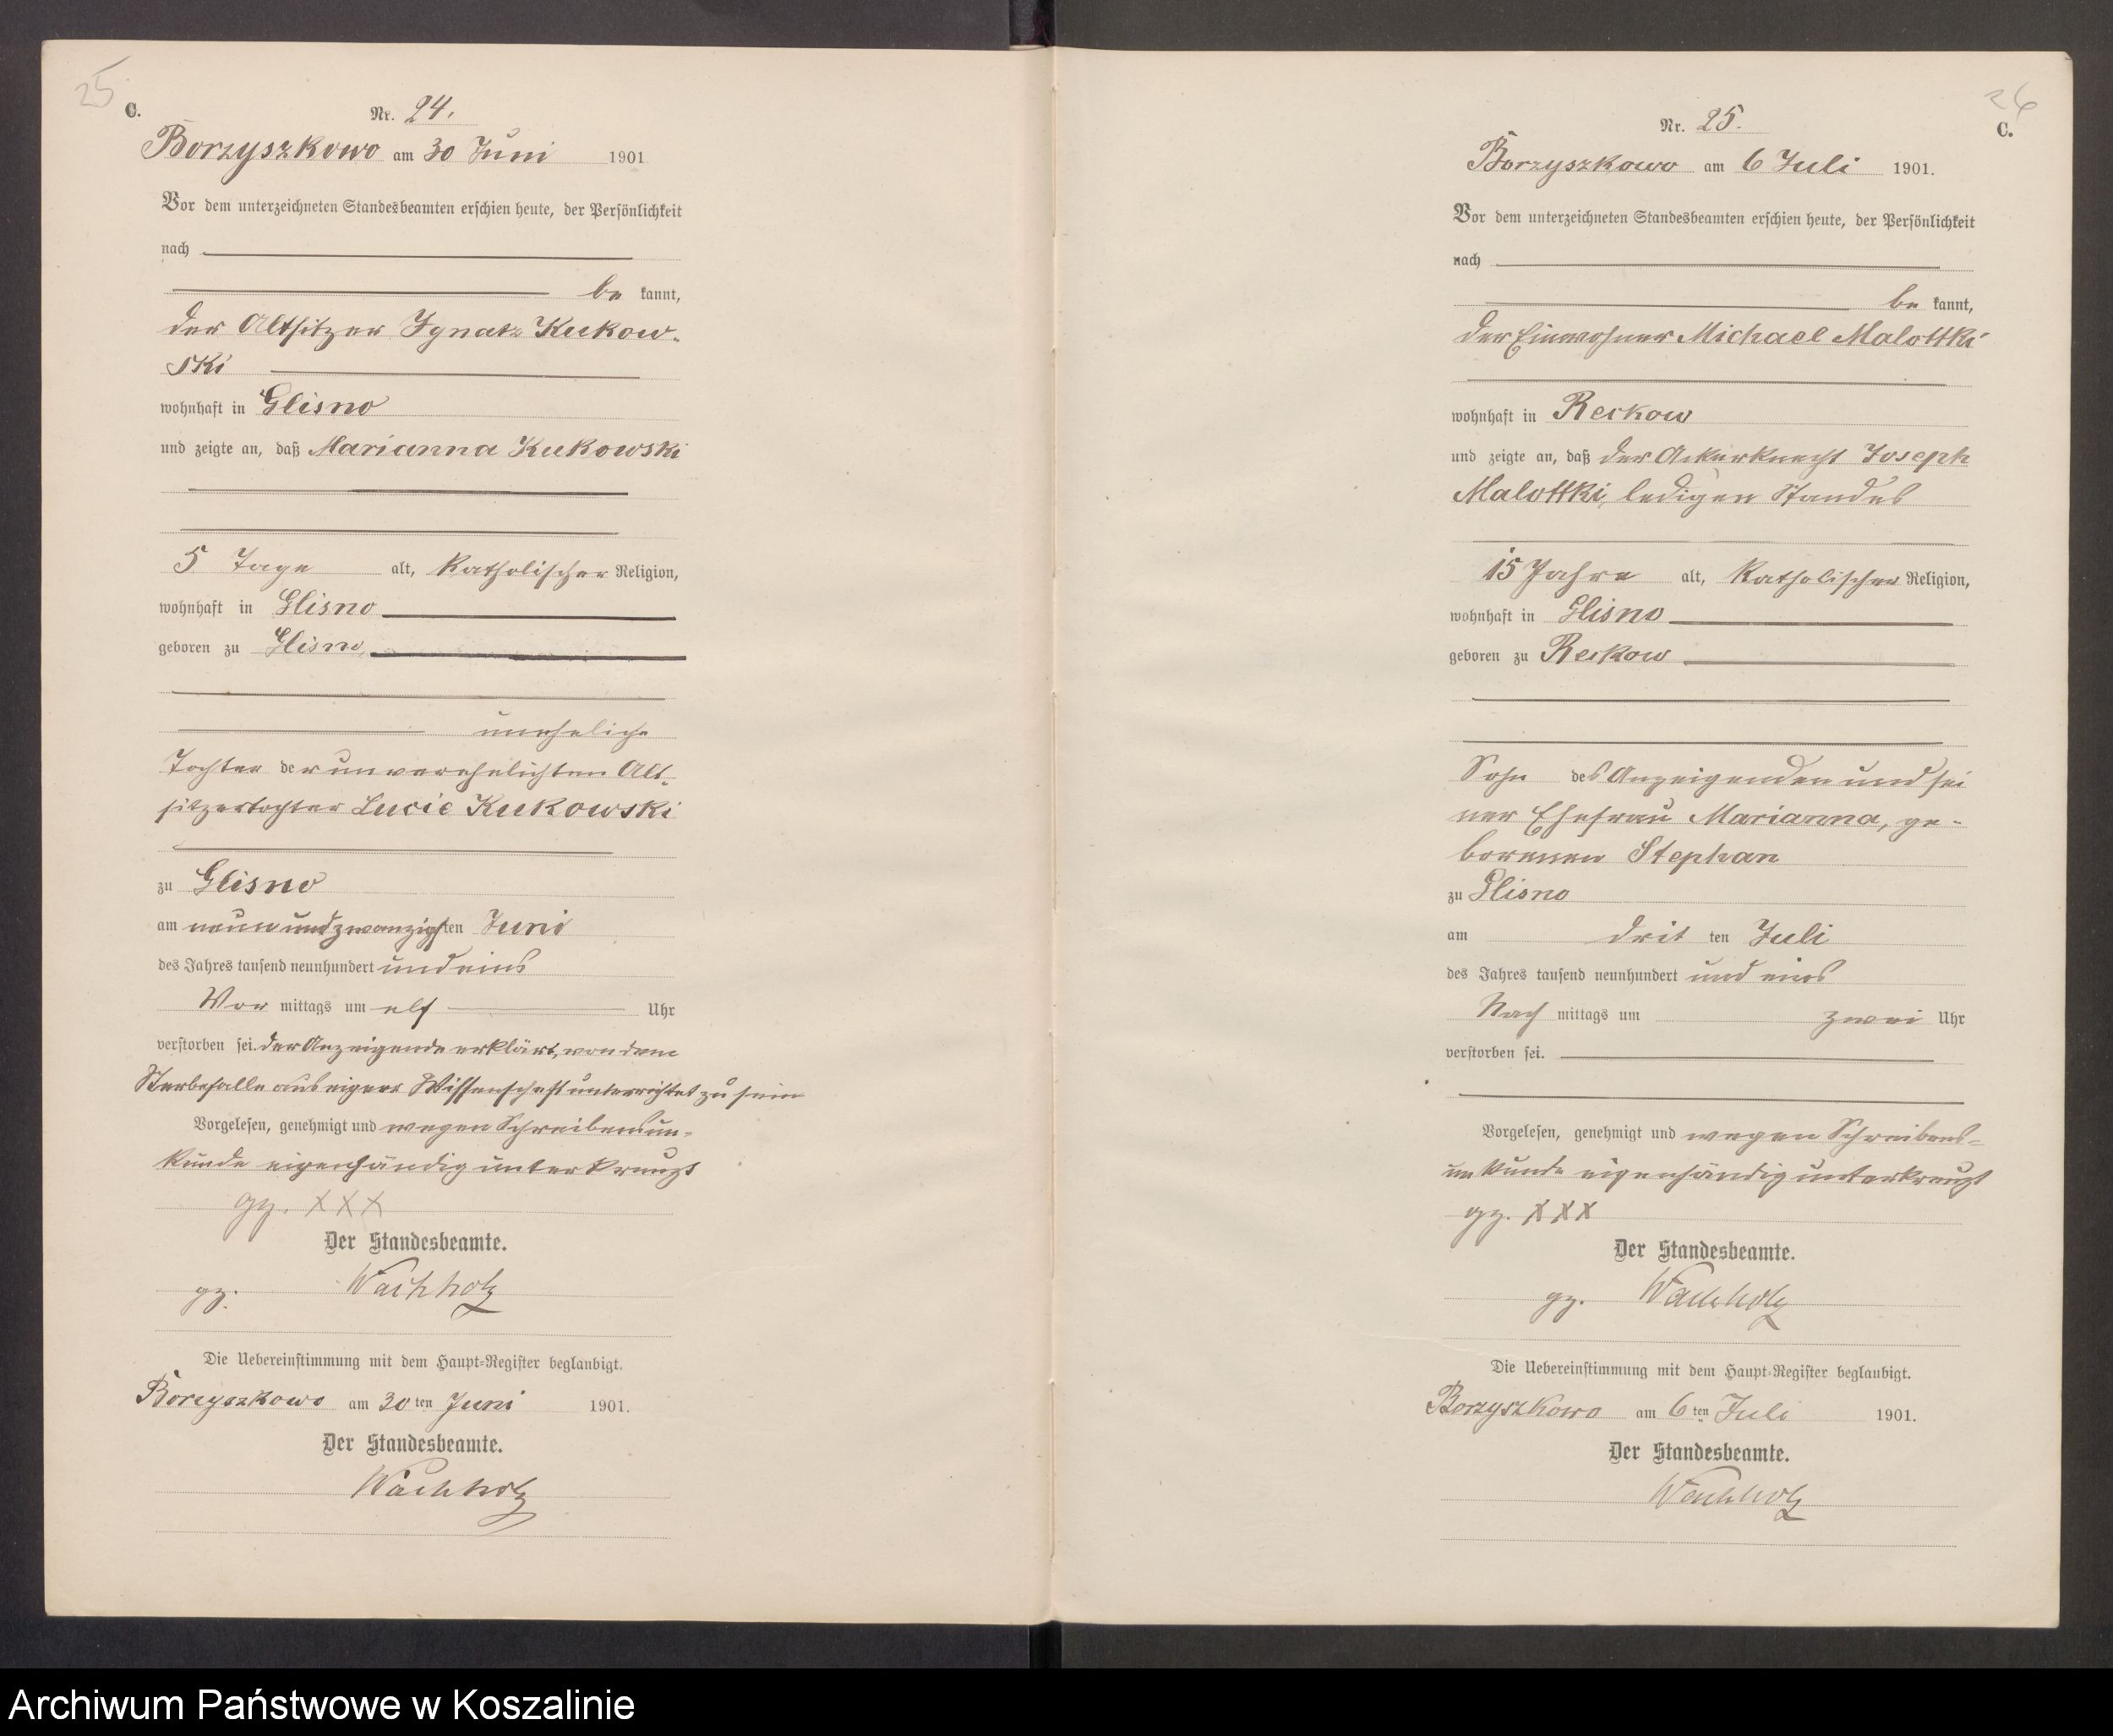 25
C.
Nr. 24.
Borzyszkowo am 30 Juni 1901
Vor dem unterzeichneten Standesbeamten erschien heute, der Persönlichkeit
nach
be kannt,
der Altsitzer Ignatz Kukow-
ski
wohnhaft in Glisno
und zeigte an, daß Marianna Kukowski
5 Tage alt, katholischer Religion,
wohnhaft in Glisno
geboren zu Glisno,
uneheliche
Tochter der unverehelichten Alt-
sitzertochter Lucie Kukowski
zu Glisno
am neunundzwanzigsten Juni
des Jahres tausend neunhundert und eins
Vor mittags um elf Uhr
verstorben sei. der Anzeigende erklärt, von dem
Sterbefalle aus eigner Wissenschaft unterrichtet zu sein
Vorgelesen, genehmigt und wegen Schreibensun-
kunde eigenhändig unterkreuzt
gz. XXX
Der Standesbeamte.
gz. Wachholz
Die Uebereinstimmung mit dem Haupt-Register beglaubigt.
Borzyszkowo am 30ten Juni 1901.
Der Standesbeamte.
Wachholz
26
C.
Nr. 25.
Borzyszkowo am 6 Juli 1901.
Vor dem unterzeichneten Standesbeamten erschien heute, der Persönlichkeit
nach
be kannt,
der Einwohner Michael Malottki
wohnhaft in Reckow
und zeigte an, daß der Ackerknecht Joseph
Malottki, ledigen Standes
15 Jahre alt, katholischer Religion,
wohnhaft in Glisno
geboren zu Reckow
Sohn des Anzeigenden und sei
ner Ehefrau Marianna, ge-
borenen Stephan
zu Glisno
am drit ten Juli
des Jahres tausend neunhundert und eins
Nach mittags um zwei Uhr
verstorben sei.
Vorgelesen, genehmigt und wegen Schreibens-
unkunde eigenhändig unterkreuzt
gz. XXX
Der Standesbeamte.
gz. Wachholz
Die Uebereinstimmung mit dem Haupt-Register beglaubigt.
Borzyszkowo am 6ten Juli 1901.
Der Standesbeamte.
Wachholz
Archiwum Państwowe w Koszalinie